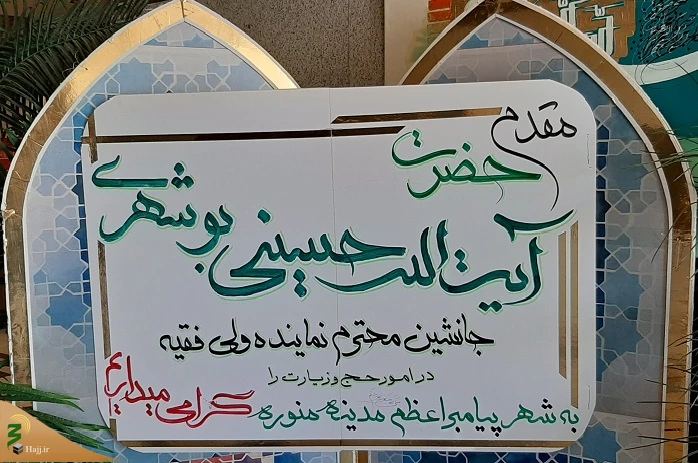 مقدم
حضرت
آیت الله حسینی بوشهری
جانشین محترم نماینده ولی فقیه
در امور حج و زیارت را
به شهر پیامبر اعظم مدینه منوره گرامی میداریم
Hajj.ir